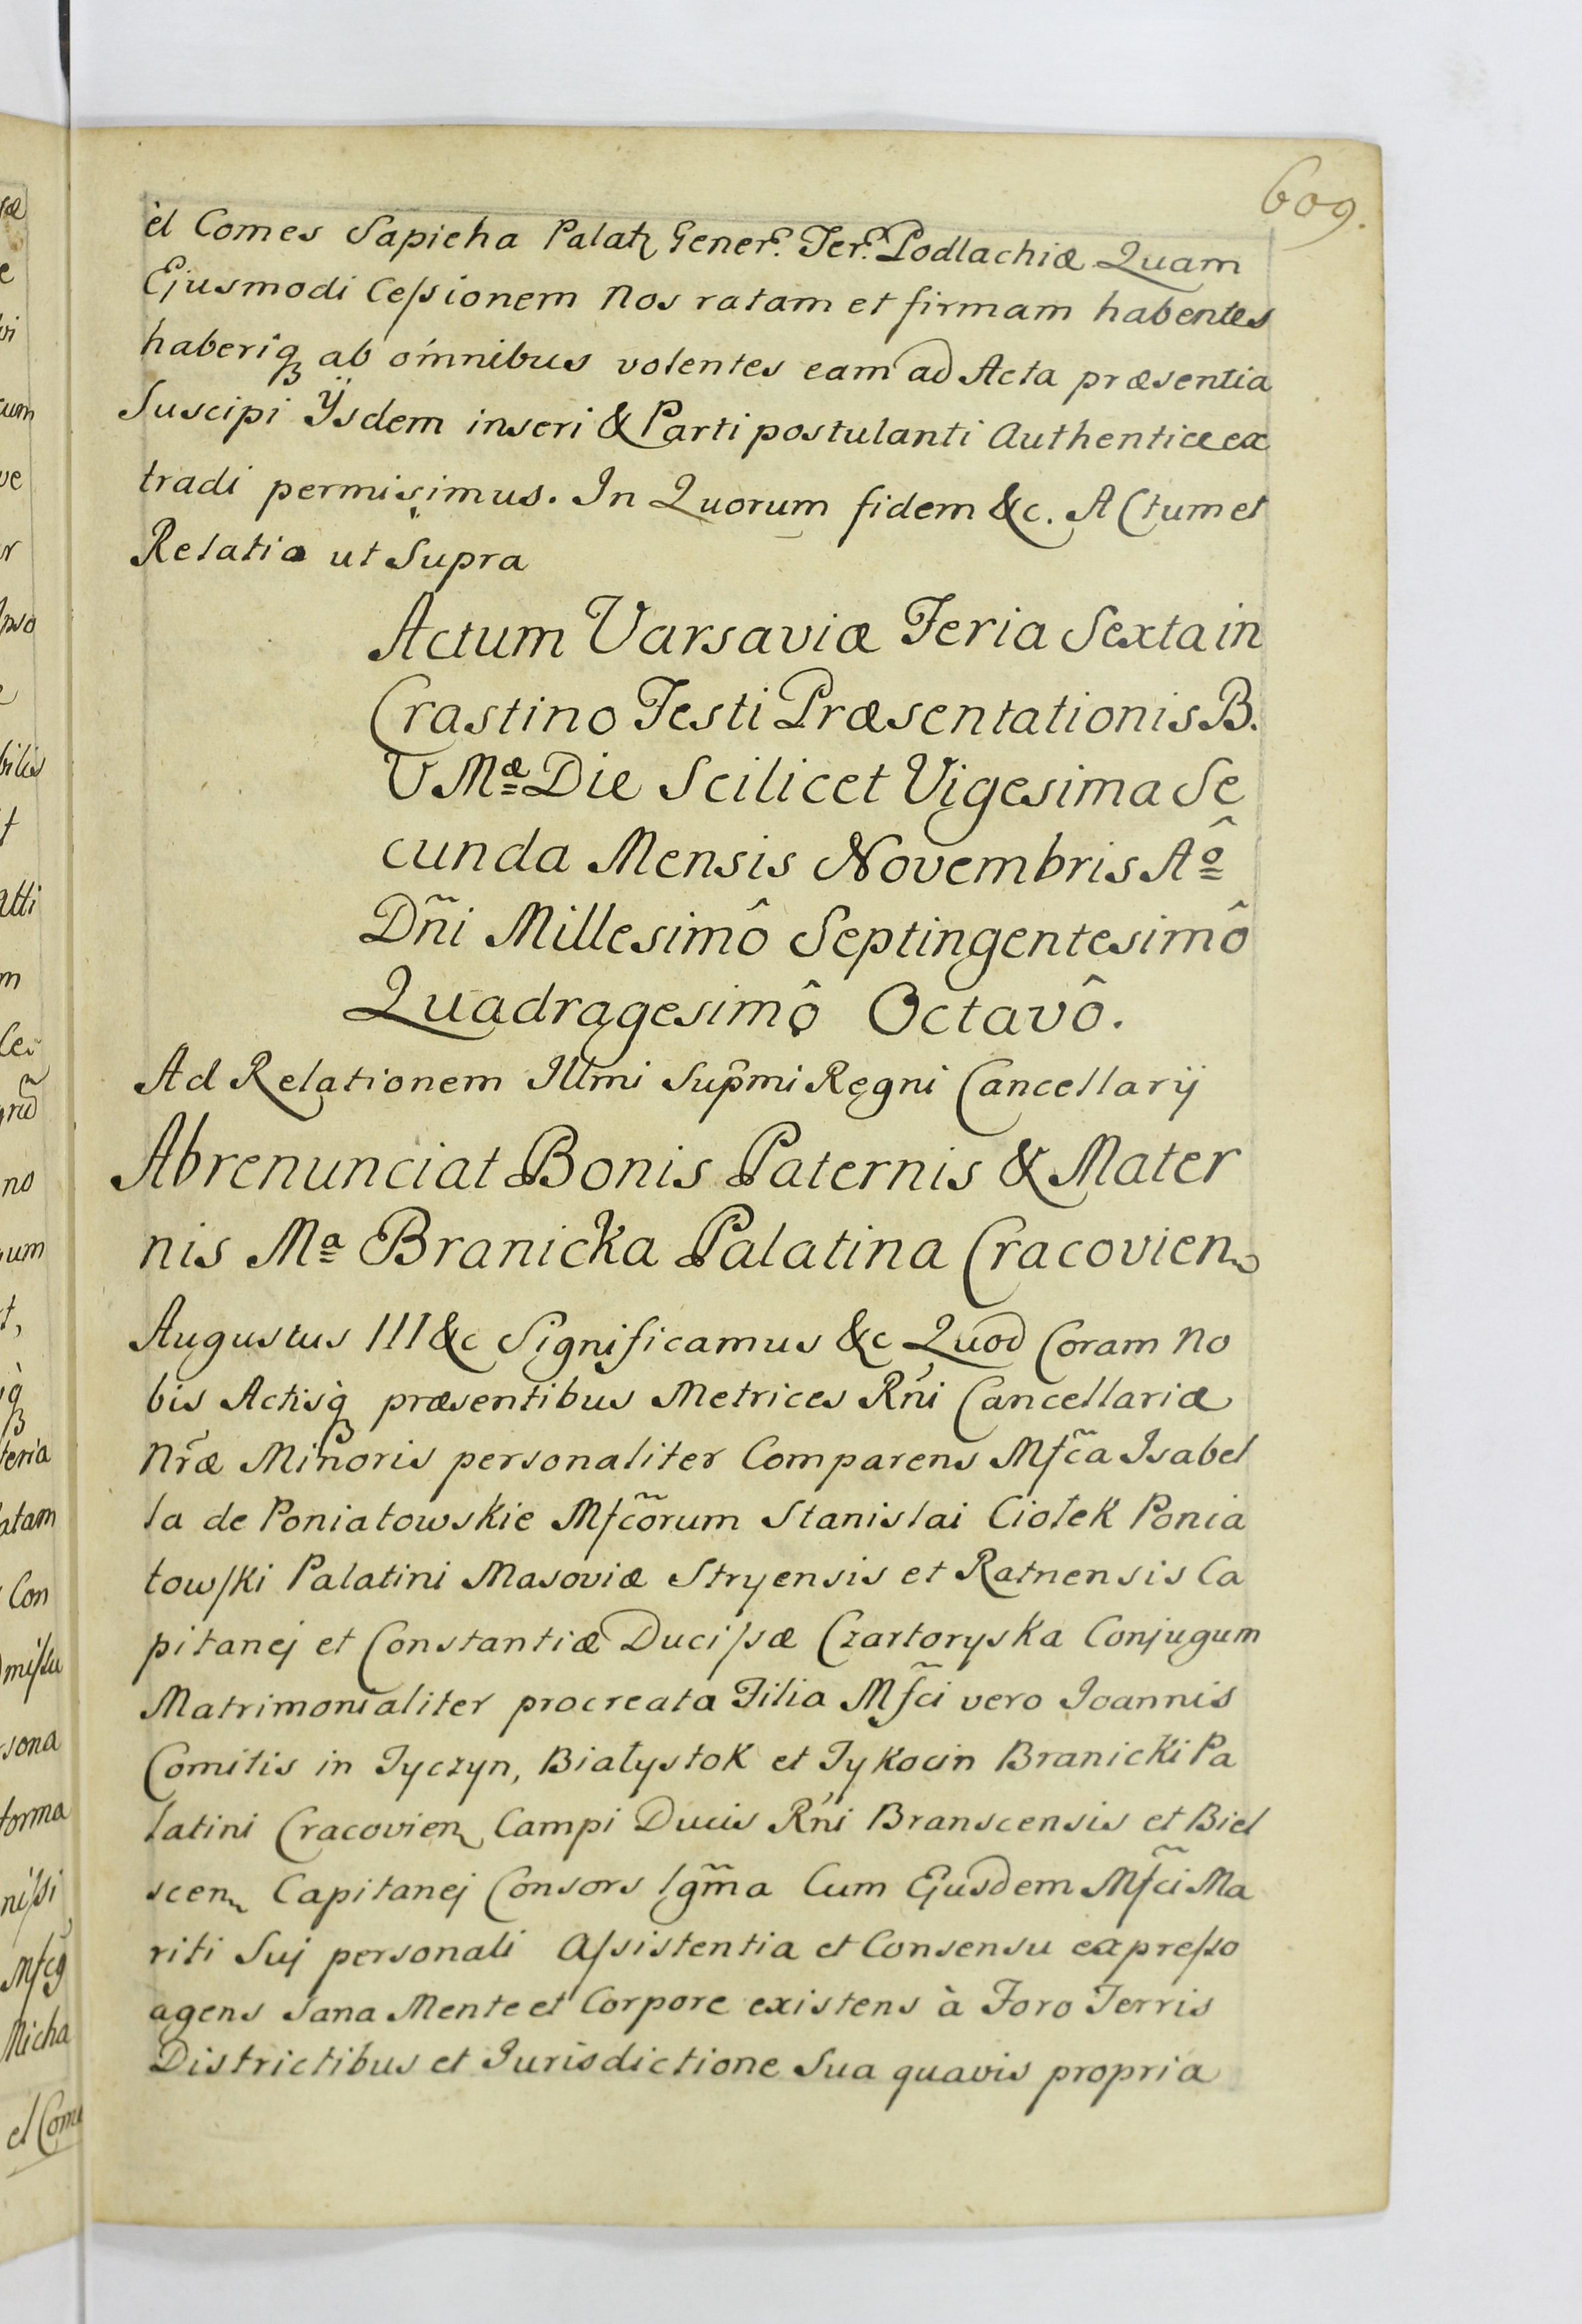 609.
el Comes Sapieha Palat Gener. Ter. Podlachiæ Quam
Ejusmodi Ceſsionem Nos ratam et firmam habentes
haberiq ab omnibus volentes eam ad Acta præsentia
Suscipi Ÿsdem inseri & Parti postulanti Authenticè ex
tradi permisimus. In Quorum fidem &c. Actum et
Relatio ut Supra
Actum Varsaviæ Feria Sexta in
Crastino Festi Præsentationis B.
V Mæ Die Scilicet Vigesima Se
cunda Mensis Novembris Aô
Dñi Millesimô Septingentesimô
Quadragesimô Octavô.
Ad Relationem Illmi Supmi Regni Cancellarij
Abrenunciat Bonis Paternis & Mater
nis Ma Branicka Palatina Cracovien
Augustus III &c Significamus &c Quod Coram No
bis Actisq præsentibus Metrices Rñi Cancellariæ
Nræ Minoris personaliter Comparens Mfca Isabel
la de Poniatowskie Mfcorum Stanislai Ciołek Ponia
towſki Palatini Masoviæ Stryensis et Ratnensis Ca
pitanej et Constantiæ Duciſsæ Czartoryska Conjugum
Matrimonialiter procreata Filia Mfci vero Joannis
Comitis in Tyczyn, Białystok et Tykocin Branicki Pa
latini Cracovien Campi Ducis Rñi Branscensis et Biel
scen Capitanej Consors lgma Cum Ejusdem Mfci Ma
riti Suj personali Aſsistentia et Consensu expreſso
agens Sana Mente et Corpore existens à Foro Terris
Districtibus et Jurisdictione Sua quavis propria